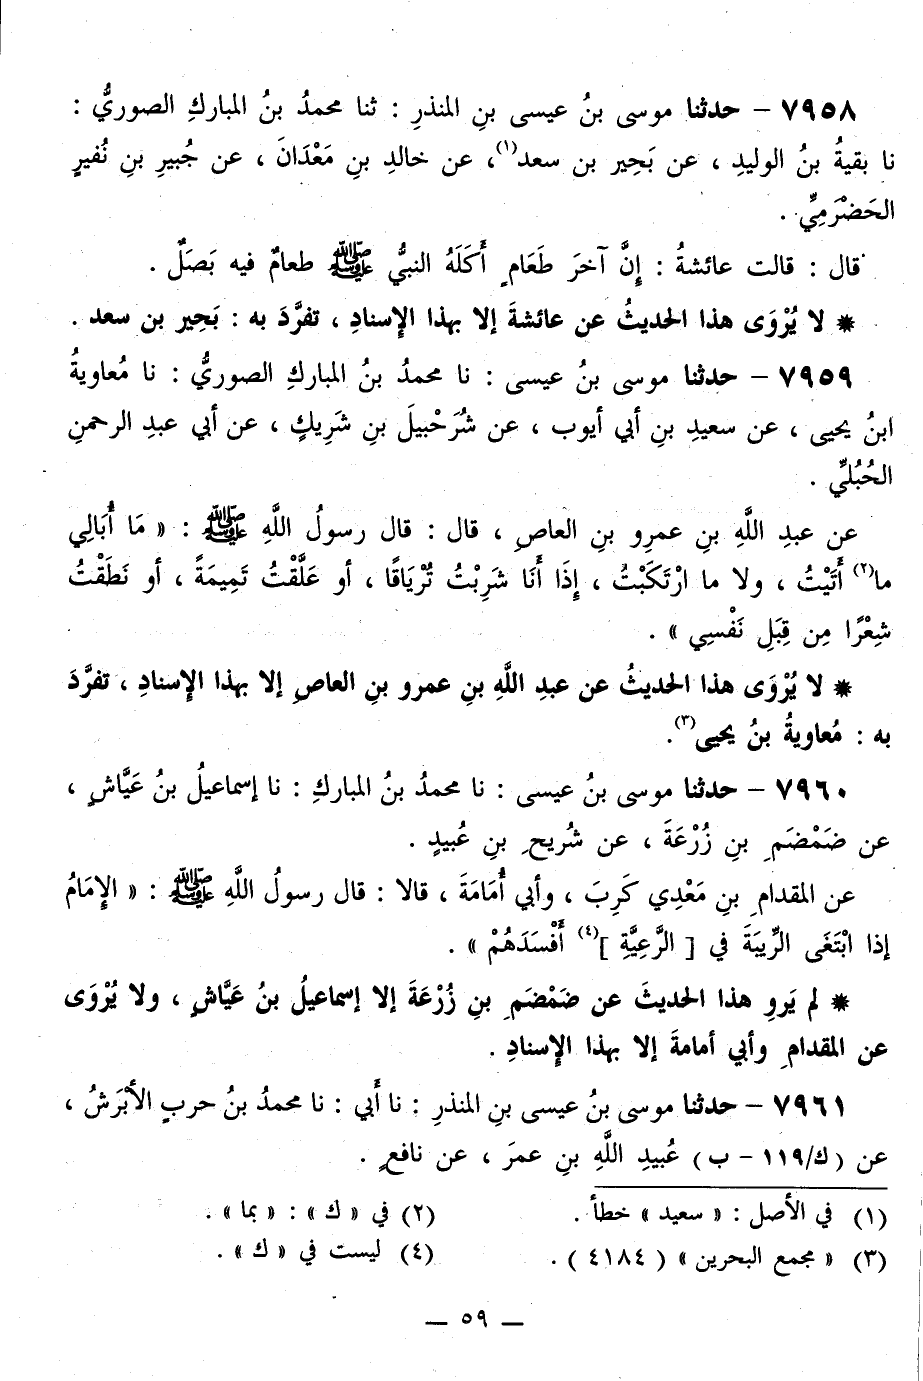 ٧٩٥٨ - حدثنا موسى بنُ عيسى بنِ المنذرِ : ثنا محمدُ بنُ المباركِ الصوريُّ :
نا بقيةُ بنُ الوليدِ ، عن بَحِير بن سعد(١)، عن خالدِ بنِ مَعْدَانَ ، عن جُبيرِ بنِ نُفيرٍ
الحَضْرَمِيِّ .
قال : قالت عائشةُ : إِنَّ آخرَ طَعَامٍ أَكَلَهُ النبيُّ ﷺ طعامٌ فيه بَصَلٌ .
* لا يُرْوَى هذا الحديثُ عن عائشةَ إلا بهذا الإِسنادِ ، تفرَّدَ به : بَحِير بن سعد .
٧٩٥٩ - حدثنا موسى بنُ عيسى : نا محمدُ بنُ المباركِ الصوريُّ : نا مُعاويةُ
ابنُ يحيى ، عن سعيدِ بنِ أبي أيوب ، عن شُرَحْبيلَ بنِ شَرِيكٍ ، عن أبي عبدِ الرحمنِ
الحُبُليِّ .
عن عبدِ اللَّهِ بنِ عمرِو بنِ العاصِ ، قال : قال رسولُ اللَّهِ ﷺ : « مَا أُبَالِي
ما(٢) أَتَيْتُ ، ولا ما ارْتَكَبْتُ ، إِذَا أَنَا شَرِبْتُ تُرْيَاقًا ، أو عَلَّقْتُ تَمِيمَةً ، أو نَطَقْتُ
شِعْرًا مِن قِبَلِ نَفْسِي » .
* لا يُرْوَى هذا الحديثُ عن عبدِ اللَّهِ بنِ عمرو بنِ العاصِ إلا بهذا الإِسنادِ ، تفرَّدَ
به : مُعاويةُ بنُ يحيى(٣).
٧٩٦٠ - حدثنا موسى بنُ عيسى : نا محمدُ بنُ المباركِ : نا إسماعيلُ بنُ عَيَّاشٍ ،
عن ضَمْضَمِ بنِ زُرْعَةَ ، عن شُريحِ بنِ عُبيدٍ .
عن المقدامِ بنِ مَعْدِي كَرِبَ ، وأبي أُمَامَةَ ، قالا : قال رسولُ اللَّهِ ﷺ : « الإِمَامُ
إذا ابْتَغَى الرِّيبَةَ في [ الرَّعِيَّةِ ](٤) أَفْسَدَهُمْ » .
* لم يَروِ هذا الحديثَ عن ضَمْضَمِ بنِ زُرْعَةَ إلا إسماعيلُ بنُ عَيَّاشٍ ، ولا يُرْوَى
عن المقدامِ وأبي أمامةَ إلا بهذا الإِسنادِ .
٧٩٦١ - حدثنا موسى بنُ عيسى بنِ المنذرِ : نا أَبي : نا محمدُ بنُ حربٍ الأَبْرَشُ ،
عن (ك/١١٩ - ب) عُبيدِ اللَّهِ بنِ عمرَ ، عن نافعٍ .
(١) في الأصل : « سعيد » خطأ .
(٢) في « ك » : « بما » .
(٣) « مجمع البحرين » ( ٤١٨٤ ) .
(٤) ليست في « ك » .
— ٥٩ —